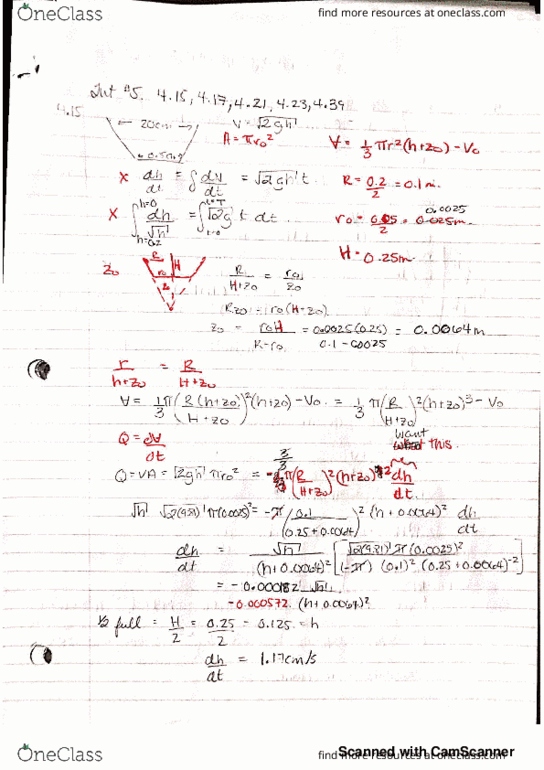 OneClass
find more resources at oneclass.com
#5. 4.15, 4.17, 4.21, 4.23, 4.39
4.15
20cm
V = √2gh
A = πr₀²
∀ = 1/3 πr²(h+z₀) - V₀
X dh/dt = ∫ dV/dt = √2gh t
R = 0.2/2 = 0.1 m.
X ∫ dh/√h = ∫ √2g t dt.
h=0
h=0.2
t=T
t=0
0.0025
r₀ = 0.05/2 = 0.025m
H = 0.25m
z₀
R
H
r₀
R/(H+z₀) = r₀/z₀
Rz₀ = r₀(H-z₀)
z₀ = r₀H/(R-r₀) = 0.0025(0.25)/(0.1-0.0025) = 0.0064m
r/(h+z₀) = R/(H+z₀)
∀ = 1/3 π(R(h+z₀)/(H+z₀))²(h+z₀) - V₀ = 1/3 π(R/(H+z₀))²(h+z₀)³ - V₀
want this.
Q = d∀/dt
Q = VA = √2gh πr₀² = -3/3 π(R/(H+z₀))²(h+z₀)² dh/dt
√h √2(9.81) π(0.0025)² = -π(0.1/(0.25+0.0064))² (h+0.0064)² dh/dt
dh/dt = √h/(h+0.0064)² [√2(9.81) π(0.0025)²/(-π)(0.1)²(0.25+0.0064)⁻²]
= -0.000182 √h
-0.000572. (h+0.0064)²
½ full = H/2 = 0.25/2 = 0.125 = h
dh/dt = 1.17cm/s
OneClass
find more resources at oneclass.com
Scanned with CamScanner